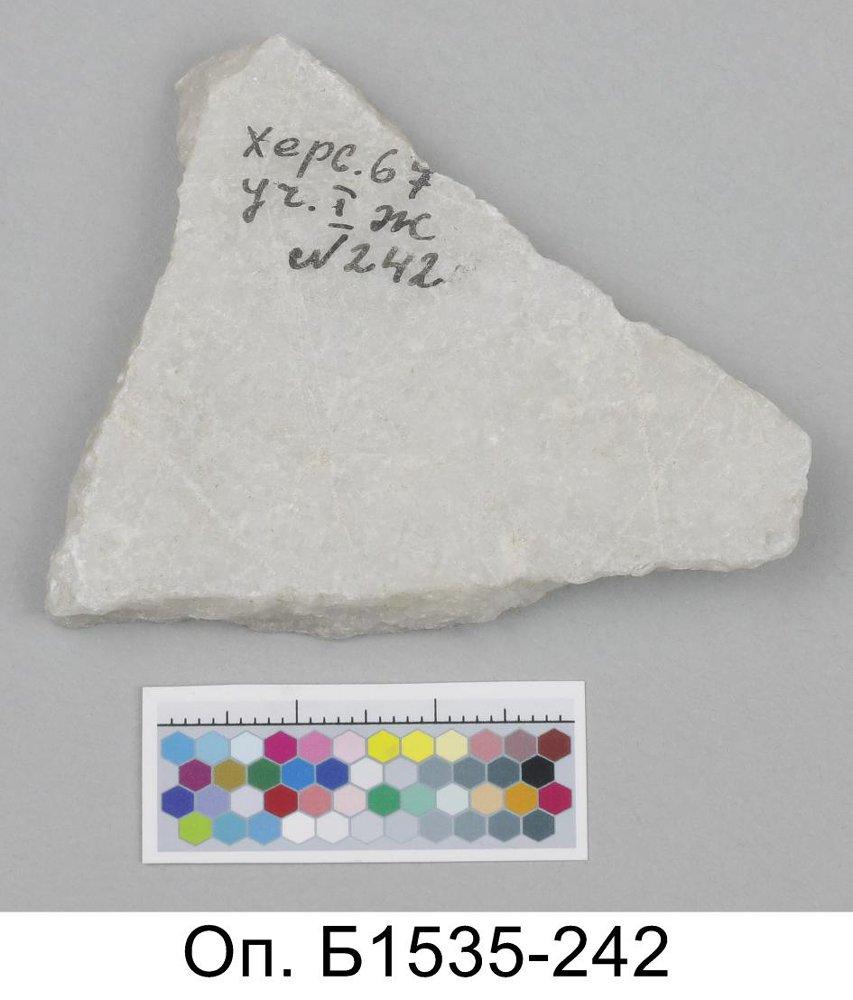 Херс. 67
уч. I ж
№242
Оп. Б1535-242